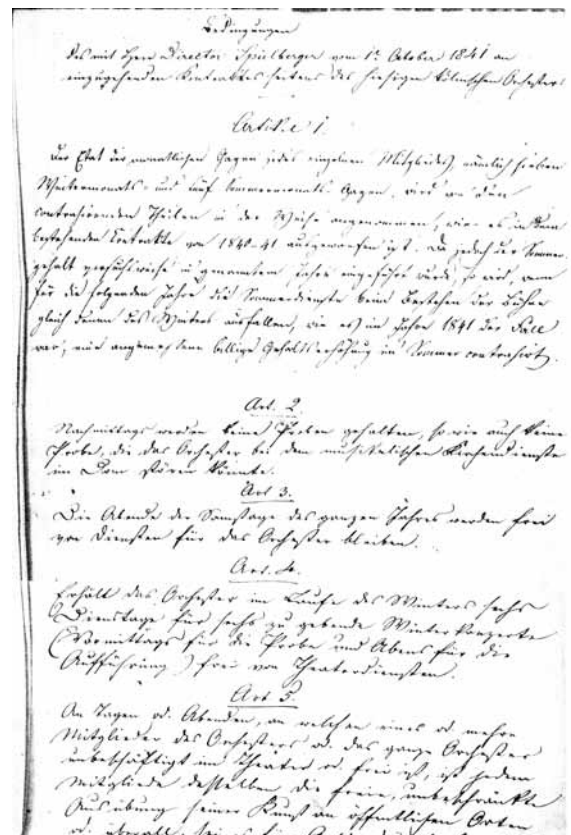 Bedingungen
des mit Herr Director Spielberger vom 1t October 1841 an
einzugehenden Kontraktes seitens des hiesigen kölnischen Orchesters.
Artikel 1.
Der Etat der monatlichen Gagen jedes einzelnen Mitgliedes, nämlich sieben
Wintermonats- und fünf Sommermonats-Gagen, wird von den
contrahirenden Theilen in der Weise angenommen, wie es in dem
bestehenden Contrakte von 1840-41 ausgeworfen ist. Da jedoch der Sommer-
gehalt versuchsweise in genanntem Jahre eingeführt wurde, so wird, wenn
für die folgenden Jahre die Sommerdienste beim Bestehen der Bühne
gleich denen des Winters ausfallen, wie es im Jahre 1841 der Fall
war, eine angemessene billige Gehaltserhöhung im Sommer contrahirt.
Art. 2
Nachmittags werden keine Proben gehalten, so wie auch keine
Probe, die das Orchester bei dem musikalischen Kirchendienste
im Dom stören könnte.
Art 3.
Die Abende der Samstage des ganzen Jahres werden frei
von Diensten für das Orchester bleiben.
Art. 4.
Erhält das Orchester im Laufe des Winters sechs
Dienstage für sechs zu gebende Winterkonzerte
(Vormittags für die Probe und Abends für die
Aufführung) frei von Theaterdiensten.
Art 5.
An Tagen od. Abenden, an welchen eines od. mehre
Mitglieder des Orchesters od. das ganze Orchester
unbeschäftigt im Theater od. frei ist, ist jedem
Mitgliede desselben die freie, unbeschränkte
Ausübung seiner Kunst an öffentlichen Orten
od. überall, sei es für